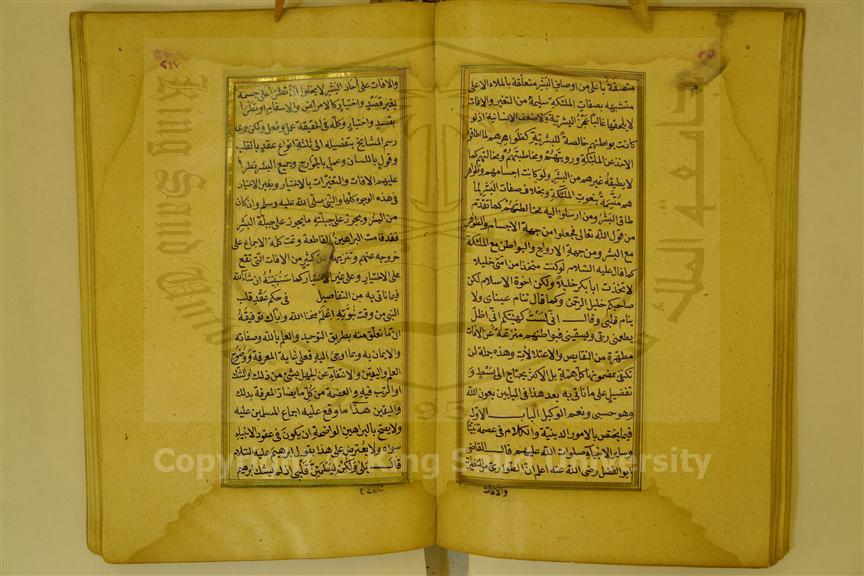 متصفة باعلى من اوصاف البشر متعلقة بالملاء الاعلى
متشبهة بصفات الملئكة سليمة من التغير والافات
لا يلحقها غالبا عجز البشرية ولا ضعف الانسانية اذ لو
كانت بواطنهم خالصة للبشرية كظواهرهم لما اطاقوا
الاخذ عن الملئكة ورويتهم ومخاطبتهم ومخالتهم كما
لا يطيقه غيرهم من البشر ولو كانت اجسامهم وظواهر
هم متسمة بنعوت الملئكة وبخلاف صفات البشر لما
طاق البشر ومن ارسلوا اليه مخالطتهم كما تقدم
من قول الله تعالى فجعلوا من جهة الاجسام والظواهر
مع البشر ومن جهة الارواح والبواطن مع الملئكة
كما قال عليه السلام لو كنت متخذا من امتى خليلا
لاتخذت ابا بكر خليلا ولكن اخوة الاسلام لكن
صاحبكم خليل الرحمن وكما قال تنام عيناى ولا
ينام قلبى وقال انى لست كهيئتكم انى اظل
يطعمنى ربى ويسقينى فبواطنهم منزهة عن الافات
مطهرة من النقايص والاعتلالات وهذه جملة لن
يكتفى بمضمونها كل همة بل الاكثر يحتاج الى بسط و
تفصيل على ما ناتى به بعد هذا فى البابين بعون الله
وهو حسبى ونعم الوكيل الباب الاول
فيما يختص بالامور الدينية والكلام فى عصمة نبينا
وساير الانبياء صلوات الله عليهم قال القاضى
ابو الفضل رضى الله عنه اعلم ان الطوارى من التغيرات
والافات
والافات على آحاد البشر لا يخلوا ان تطرا على جسمه
بغير قصد واختيار كالامراض والاسقام او تطرا
بقصد واختيار وكله فى الحقيقة عمل وفعل ولكن جرى
رسم المشايخ بتفصيله الى ثلثة انواع عقد بالقلب
وقول باللسان وعمل بالجوارح وجميع البشر تطرا
عليهم الافات والتغيرات بالاختيار وبغير الاختيار
فى هذه الوجوه كلها والنبى صلى الله عليه وسلم وان كان
من البشر ويجوز على جبلته ما يجوز على جبلة البشر
فقد قامت البراهين القاطعة وتمت كلمة الاجماع على
خروجه عنهم وتنزيهه عن كثير من الافات التى تقع
على الاختيار وعلى غير الاختيار كما سنبينه ان شاء الله
فيما ناتى به من التفاصيل فى حكم عقد قلب
النبى من وقت نبوته اعلم منحنا الله واياك توفيقه
ان ما تعلق منه بطريق التوحيد والعلم بالله وصفاته
والايمان به وبما اوحى اليه فعلى غاية المعرفة ووضوح
العلم واليقين والانتفاء عن الجهل بشئ من ذلك والشك
او الريب فيه والعصمة من كل ما يضاد المعرفة بذلك
واليقين هذا ما وقع عليه اجماع المسلمين عليه
ولا يصح بالبراهين الواضحة ان يكون فى عقود الانبياء
سواه ولا يعترض على هذا بقول ابراهيم عليه السلام
قال بلى ولكن ليطمئن قلبى اذ لم يشك ابرهيم
جامعة الملك
King Saud
1957
Copyright © King Saud University